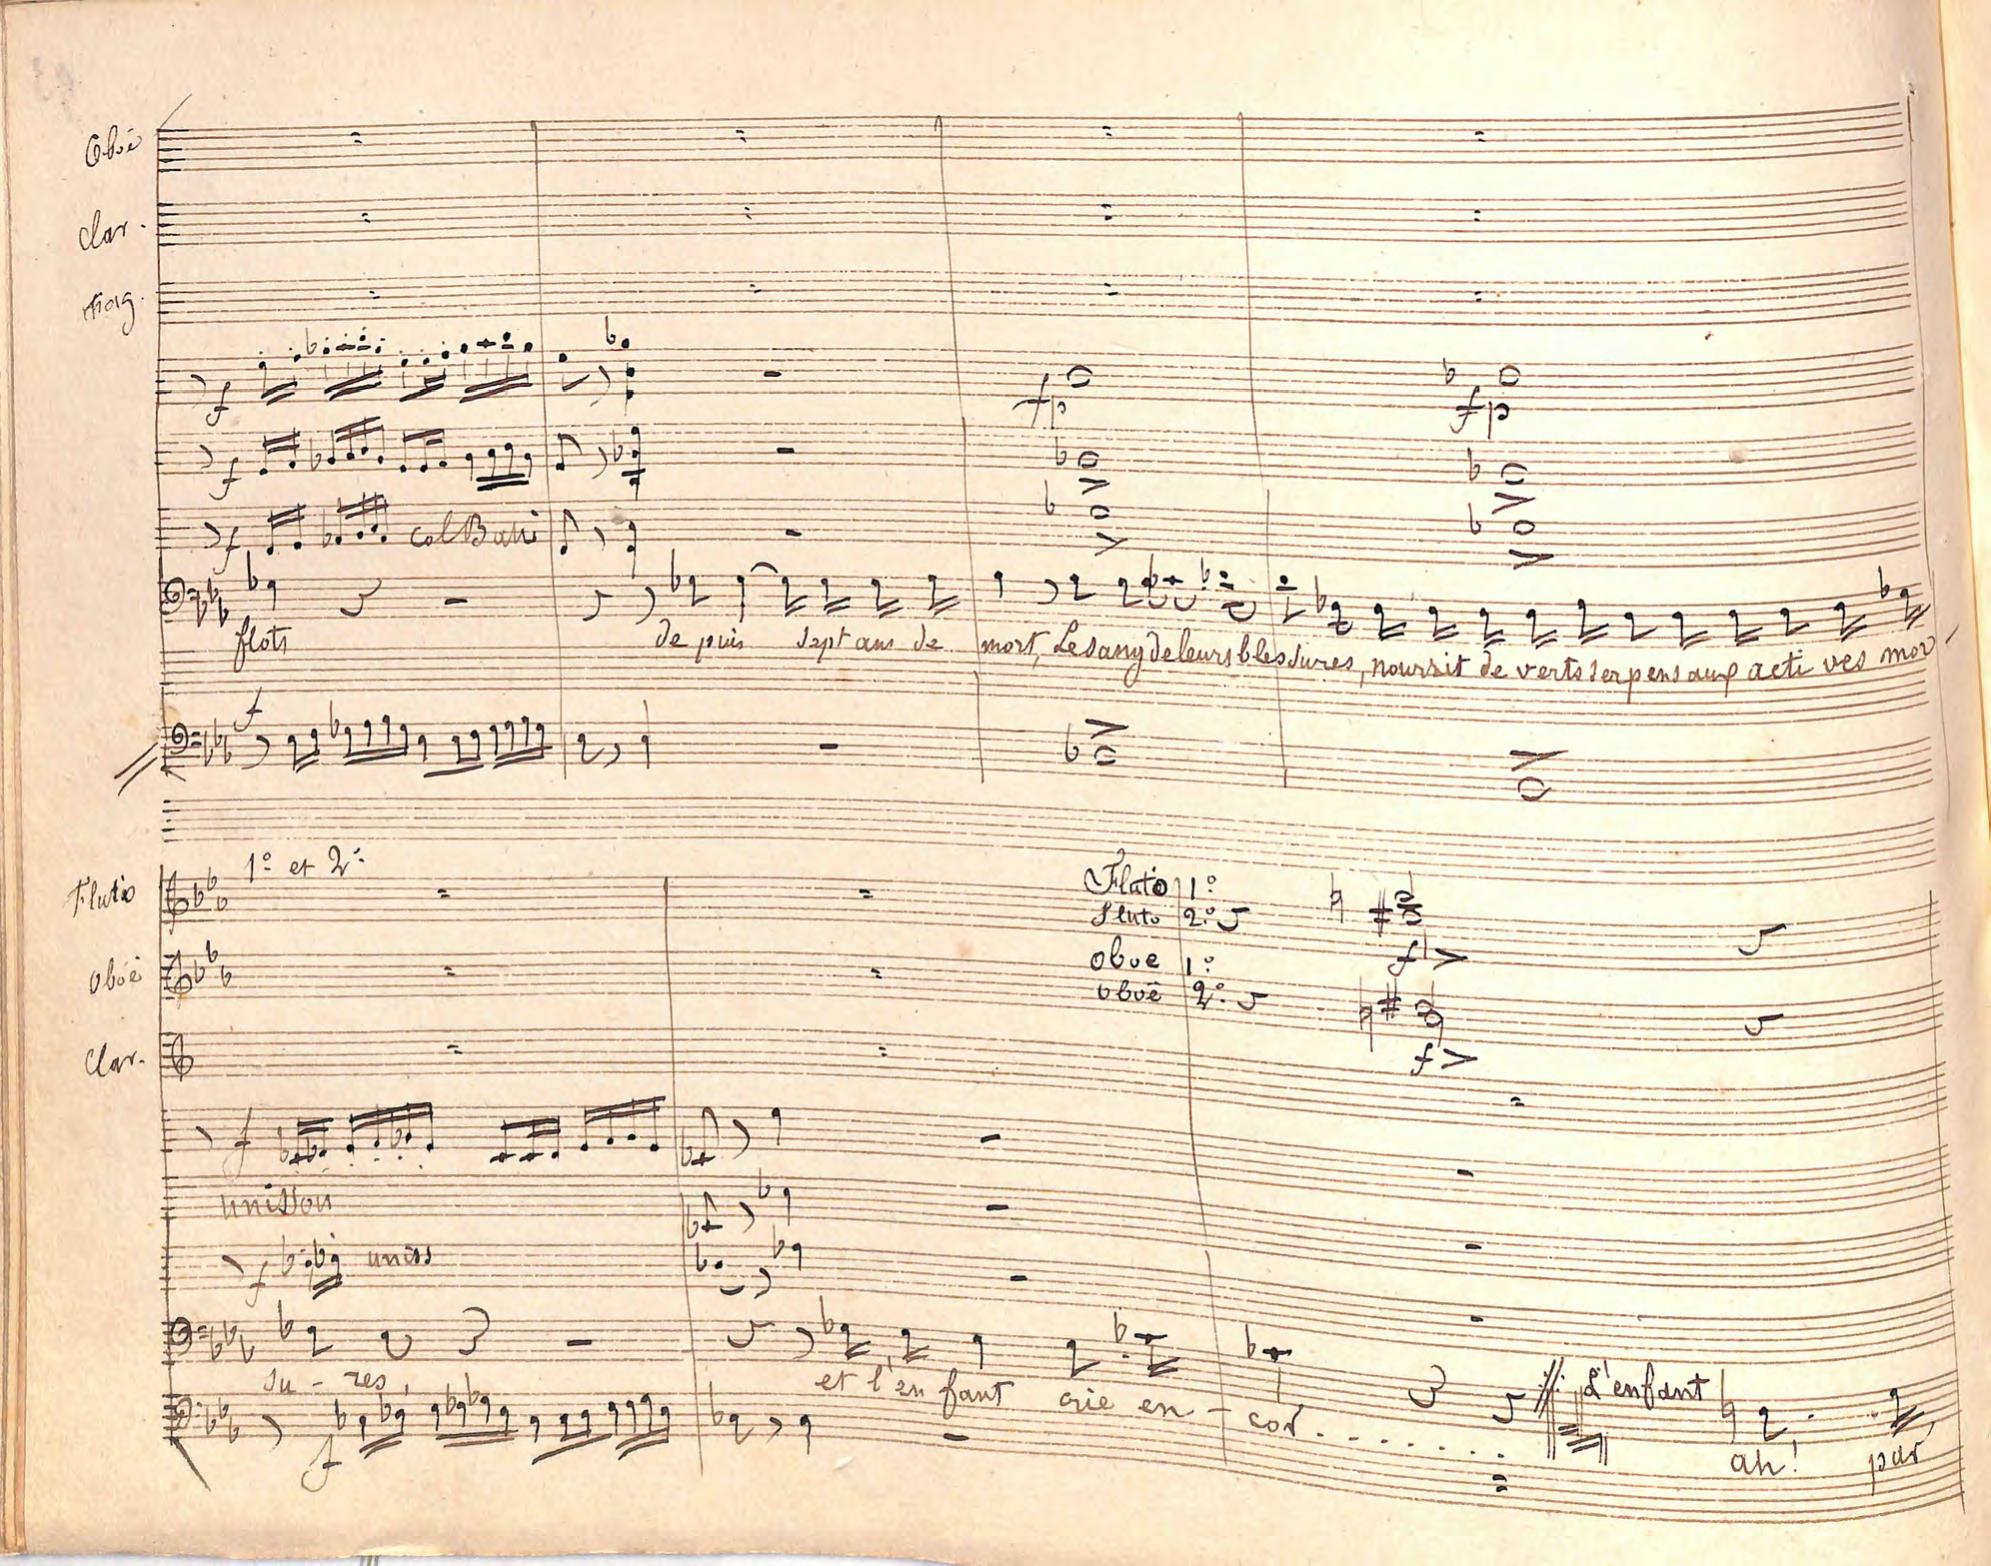 Oboë
Clar.
Fag.
f
fp
fp
f
f
col Bassi
flots de puis sept ans de mort, Le sang de leurs bles sures, nourrit de verts serpens aux acti ves mor-
f
1º et 2º
Flauto
Flauto 1º
Fluto 2º
f
Oboë
oboe 1º
oboë 2º
f
Clar.
f
unisson
f
uniss
su - res, et l'en fant crie en - cor........ L'enfant ah! par
f